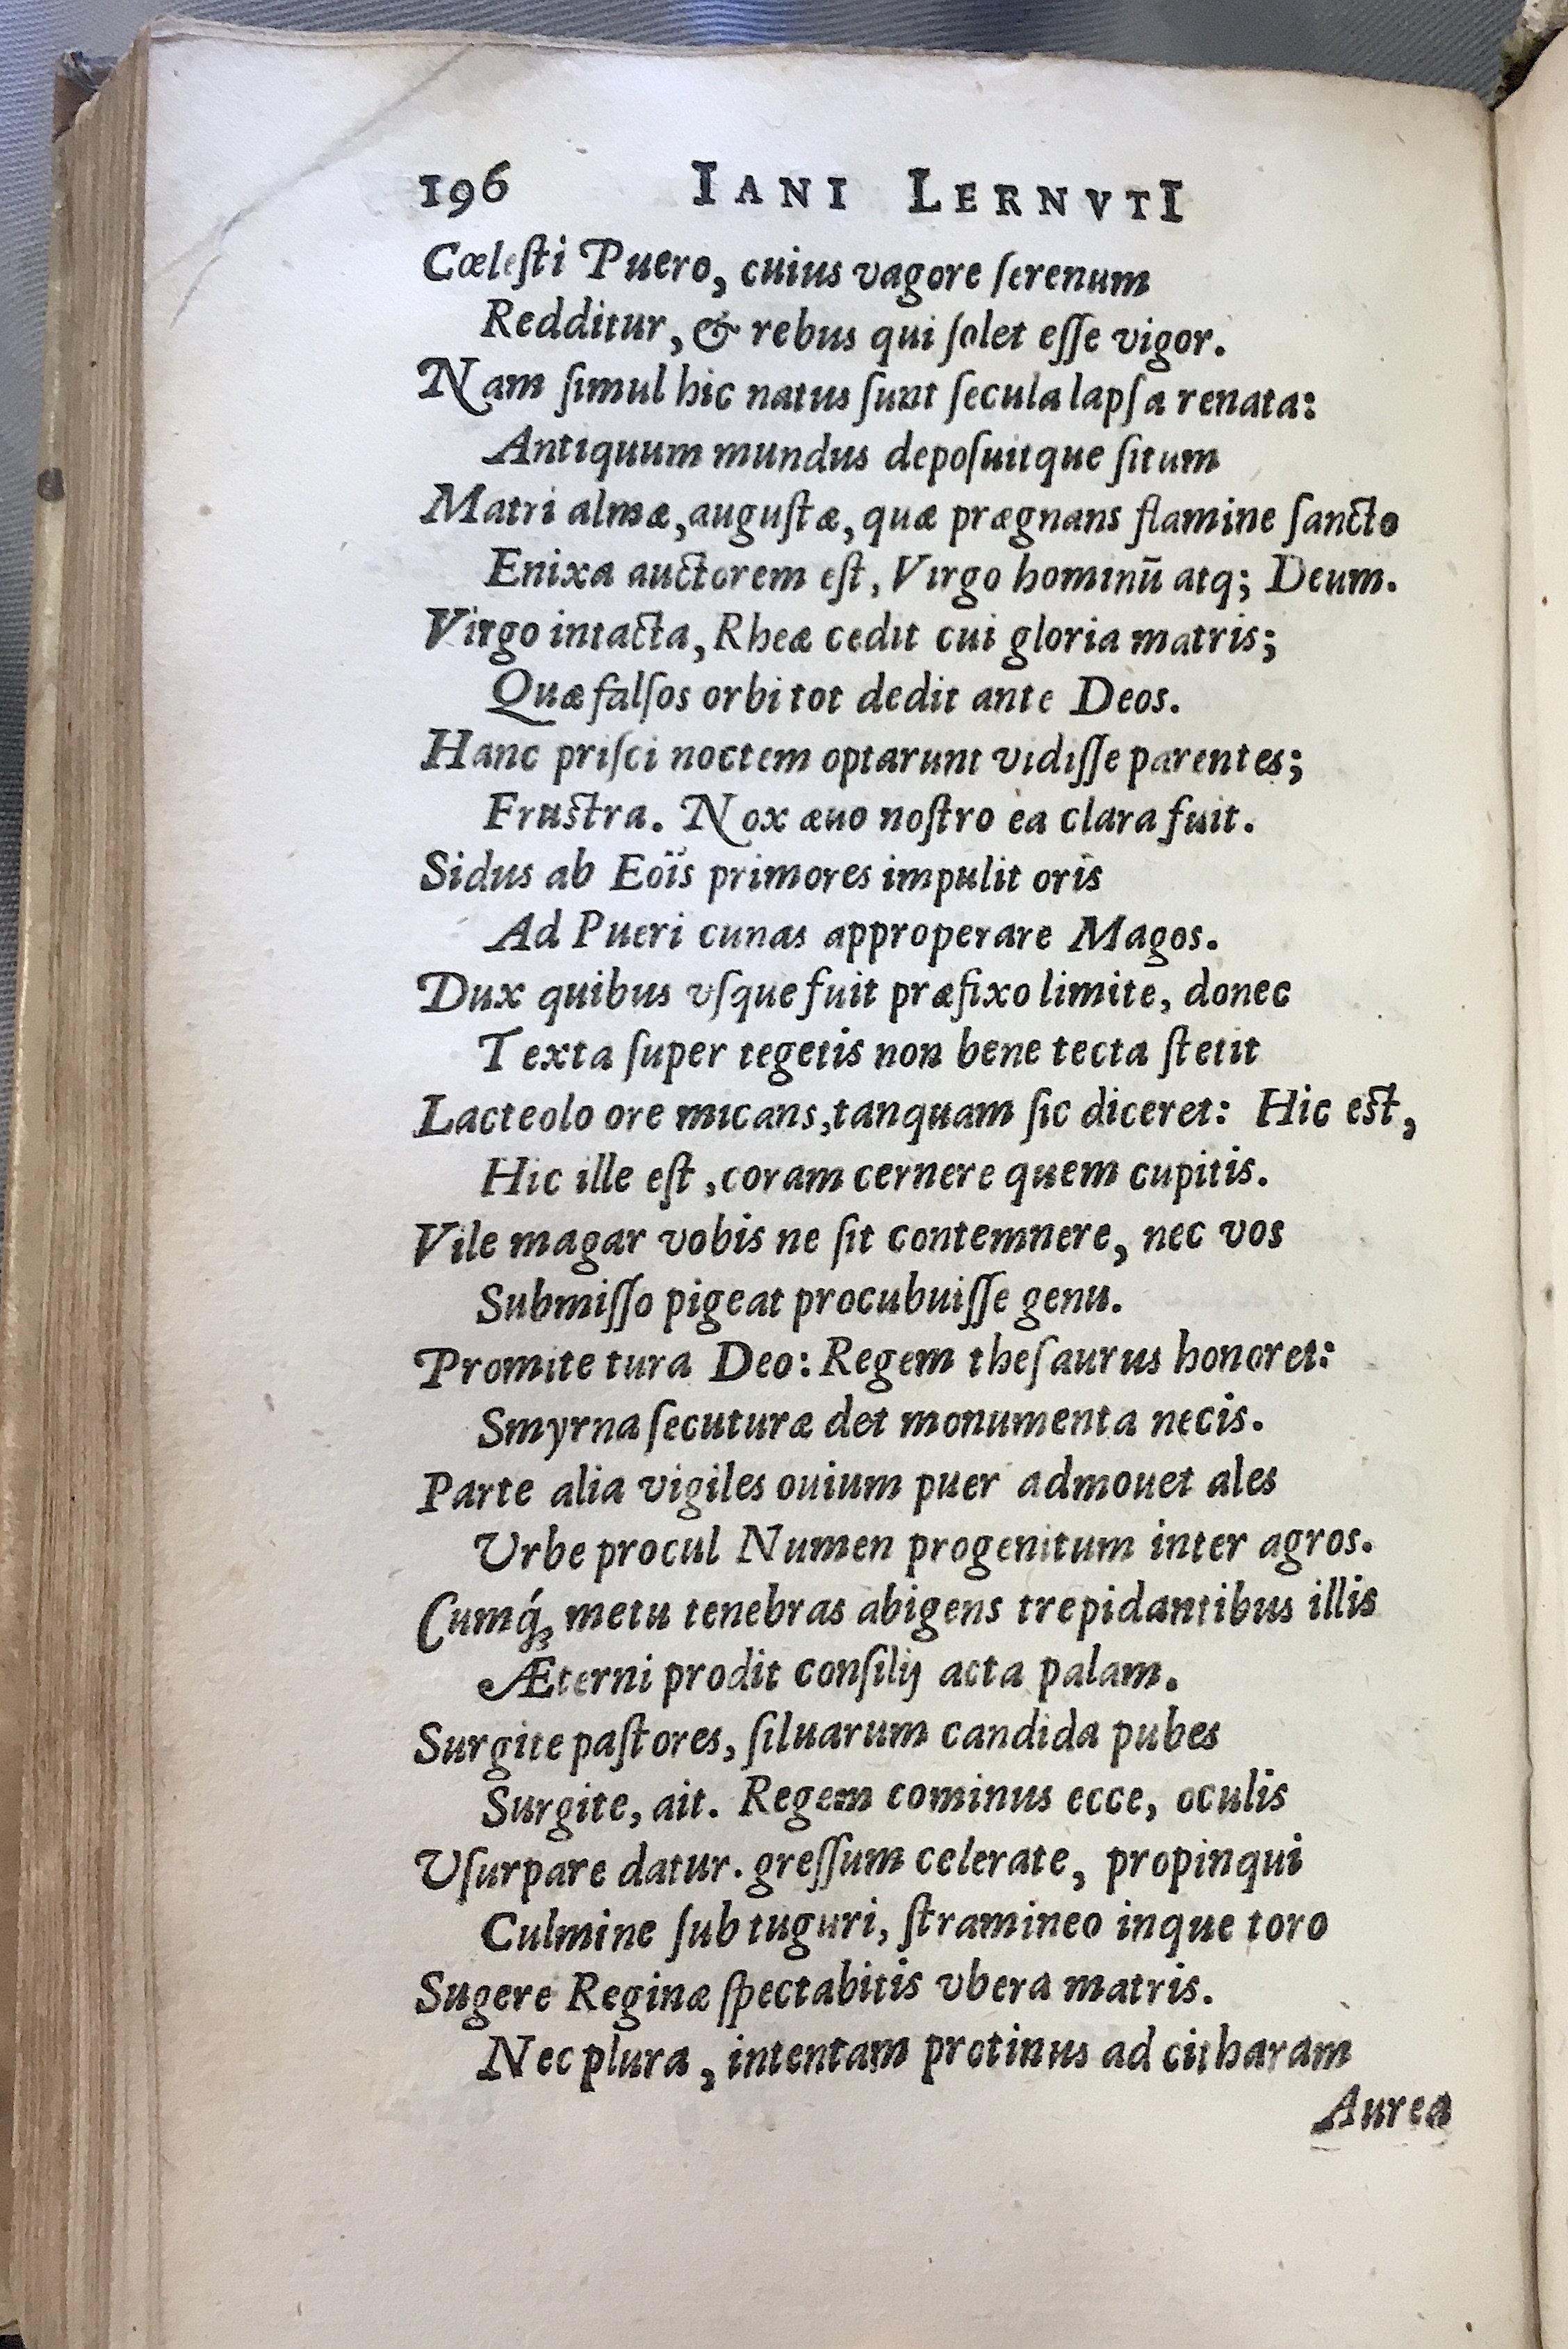 196 IANI LERNVTI
Cœleſti Puero, cuius vagore ſerenum
Redditur, & rebus qui ſolet eſſe vigor.
Nam ſimul hic natus ſunt ſecula lapſa renata:
Antiquum mundus depoſuitque ſitum
Matri almæ, auguſtæ, quæ prægnans flamine ſancto
Enixa auctorem eſt, Virgo hominū atq; Deum.
Virgo intacta, Rheæ cedit cui gloria matris;
Quæ falſos orbi tot dedit ante Deos.
Hanc priſci noctem optarunt vidiſſe parentes;
Fruſtra. Nox æuo noſtro ea clara fuit.
Sidus ab Eoïs primores impulit oris
Ad Pueri cunas approperare Magos.
Dux quibus vſque fuit præfixo limite, donec
Texta ſuper tegetis non bene tecta ſtetit
Lacteolo ore micans, tanquam ſic diceret: Hic eſt,
Hic ille eſt, coram cernere quem cupitis.
Vile magar vobis ne ſit contemnere, nec vos
Submiſſo pigeat procubuiſſe genu.
Promite tura Deo: Regem theſaurus honoret:
Smyrna ſecuturæ det monumenta necis.
Parte alia vigiles ouium puer admouet ales
Urbe procul Numen progenitum inter agros.
Cumq́ꝫ metu tenebras abigens trepidantibus illis
Æterni prodit conſilij acta palam.
Surgite paſtores, ſiluarum candida pubes
Surgite, ait. Regem cominus ecce, oculis
Uſurpare datur. greſſum celerate, propinqui
Culmine ſub tuguri, ſtramineo inque toro
Sugere Reginæ ſpectabitis vbera matris.
Nec plura, intentam protinus ad citharam
Aurea